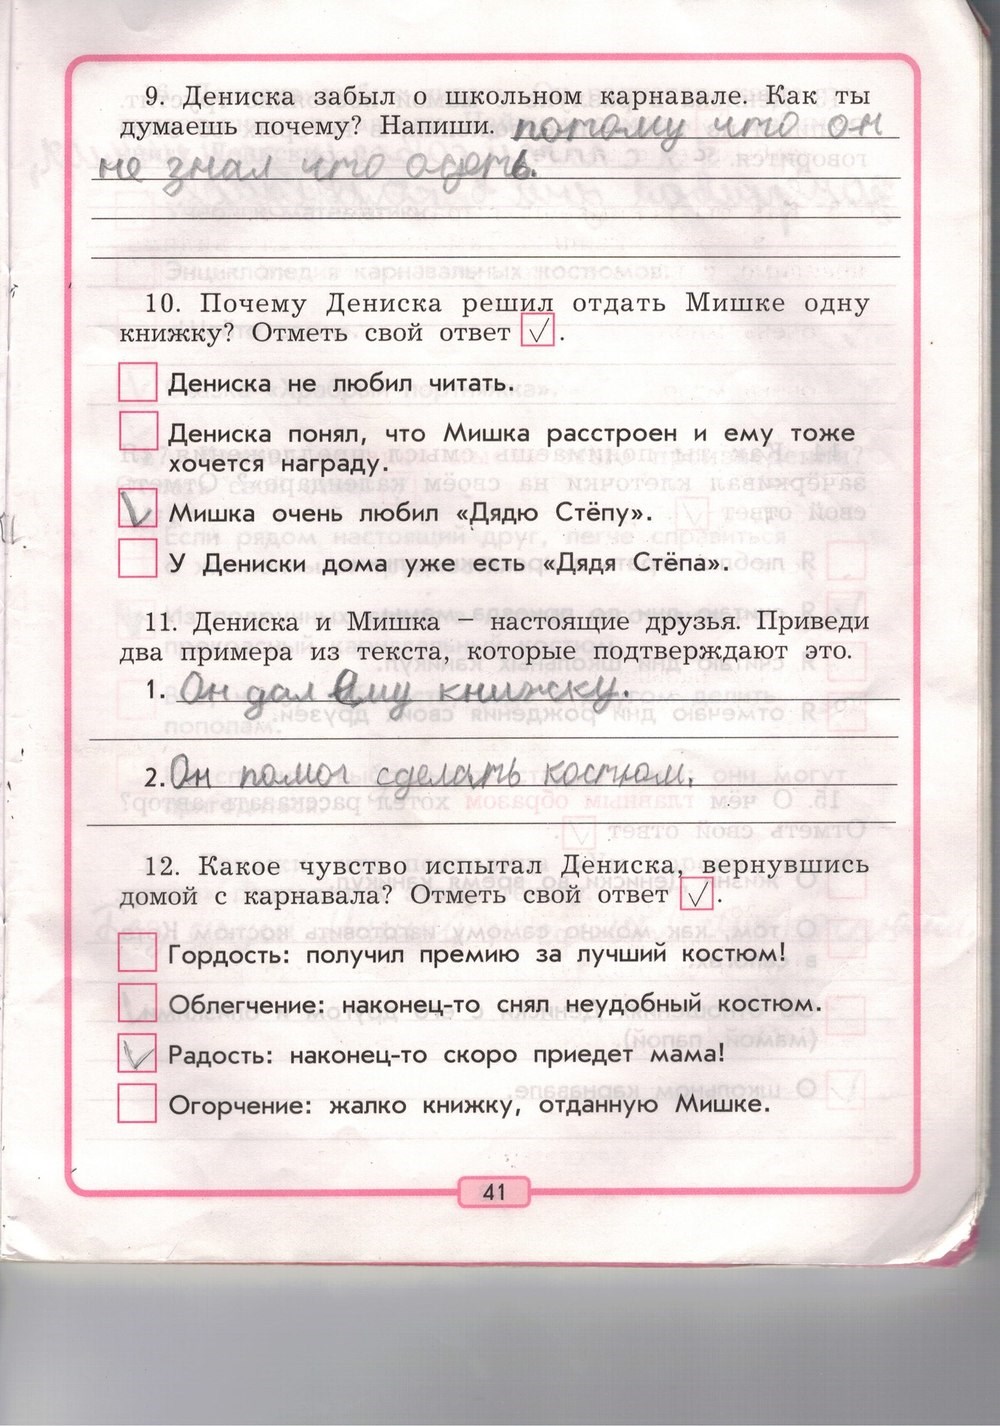 9. Дениска забыл о школьном карнавале. Как ты
думаешь почему? Напиши. потому что он
не знал что одеть.
10. Почему Дениска решил отдать Мишке одну
книжку? Отметь свой ответ √.
Дениска не любил читать.
Дениска понял, что Мишка расстроен и ему тоже
хочется награду.
Мишка очень любил «Дядю Стёпу».
У Дениски дома уже есть «Дядя Стёпа».
11. Дениска и Мишка – настоящие друзья. Приведи
два примера из текста, которые подтверждают это.
1. Он дал Ему книжку.
2. Он помог сделать костюм.
12. Какое чувство испытал Дениска, вернувшись
домой с карнавала? Отметь свой ответ √.
Гордость: получил премию за лучший костюм!
Облегчение: наконец-то снял неудобный костюм.
Радость: наконец-то скоро приедет мама!
Огорчение: жалко книжку, отданную Мишке.
41